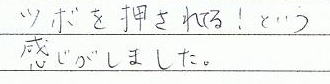 ツボを押されてる!という
感じがしました。